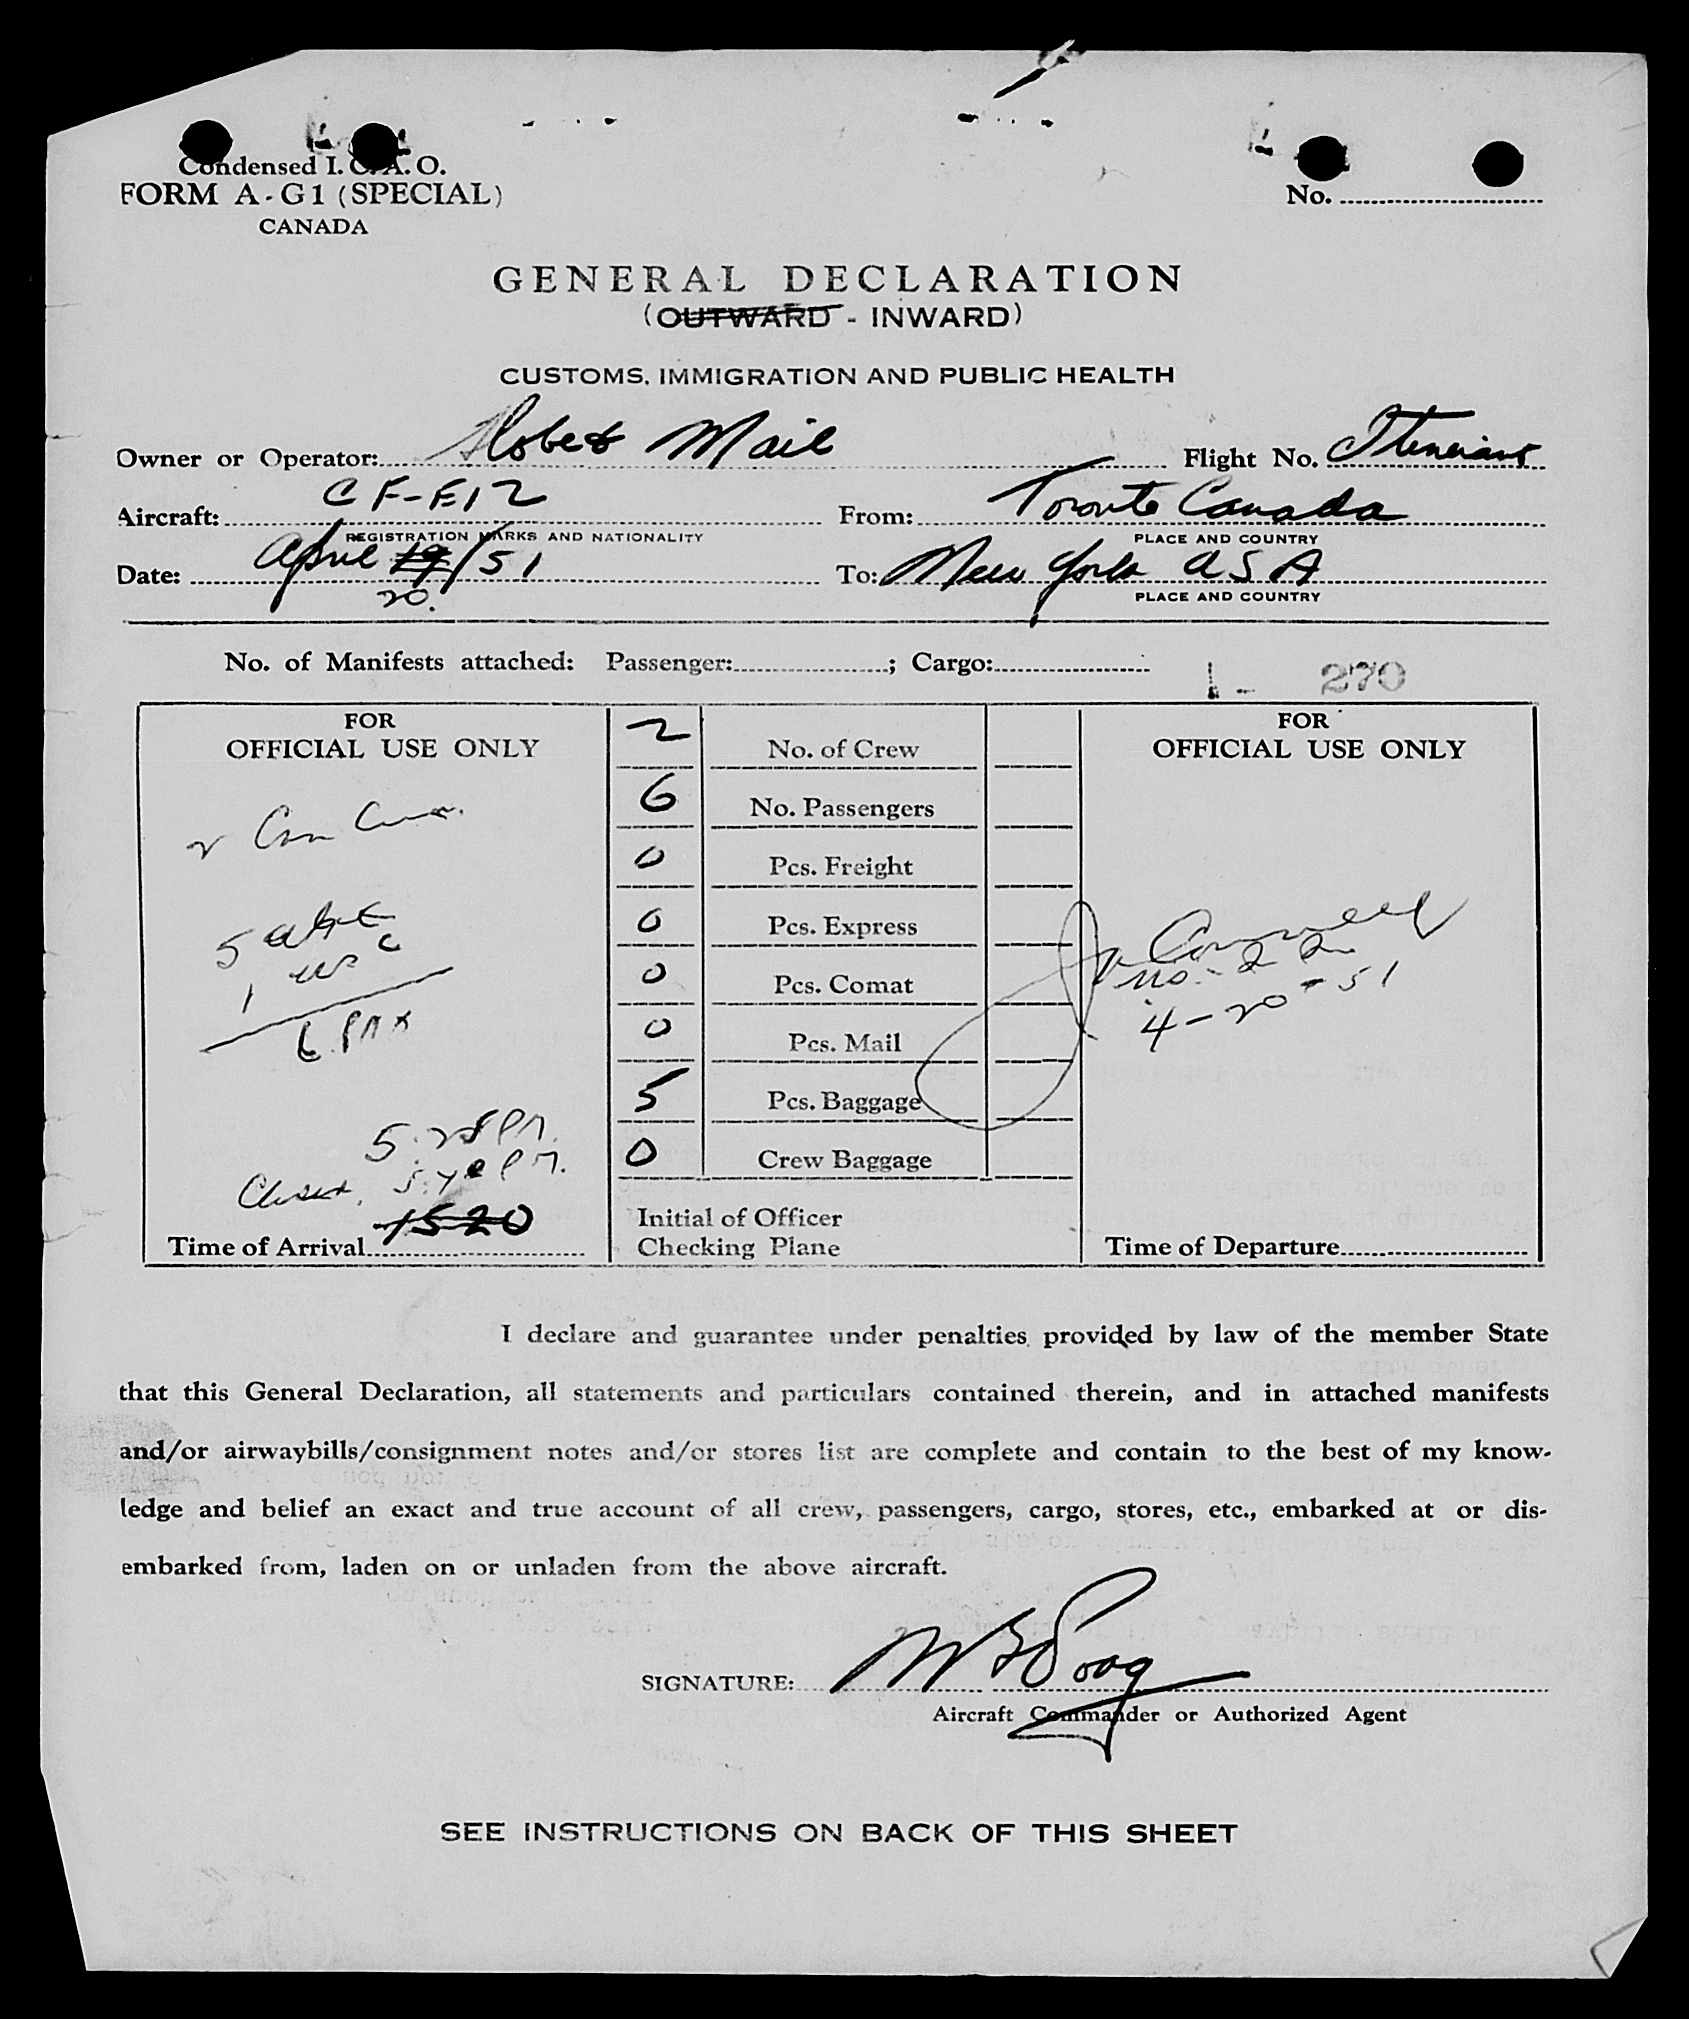 Condensed I. C. A. O.
FORM A-G1 (SPECIAL)
CANADA
No.
GENERAL DECLARATION
(OUTWARD - INWARD)
CUSTOMS, IMMIGRATION AND PUBLIC HEALTH
Owner or Operator: Mail Flight No.
Aircraft: CF-E12 From: Toronto Canada
REGISTRATION MARKS AND NATIONALITY PLACE AND COUNTRY
Date: April 19/51 To: New York USA
20. PLACE AND COUNTRY
No. of Manifests attached: Passenger: ; Cargo:
1- 270
FOR
OFFICIAL USE ONLY
2 Can
5
1 usc
6 PAX
5:25 PM.
Closed, PM.
1520
Time of Arrival
2 No. of Crew
6 No. Passengers
0 Pcs. Freight
0 Pcs. Express
0 Pcs. Comat
0 Pcs. Mail
5 Pcs. Baggage
0 Crew Baggage
Initial of Officer
Checking Plane
FOR
OFFICIAL USE ONLY
no. 22
4-20-51
Time of Departure
I declare and guarantee under penalties provided by law of the member State
that this General Declaration, all statements and particulars contained therein, and in attached manifests
and/or airwaybills/consignment notes and/or stores list are complete and contain to the best of my know-
ledge and belief an exact and true account of all crew, passengers, cargo, stores, etc., embarked at or dis-
embarked from, laden on or unladen from the above aircraft.
SIGNATURE:
Aircraft Commander or Authorized Agent
SEE INSTRUCTIONS ON BACK OF THIS SHEET